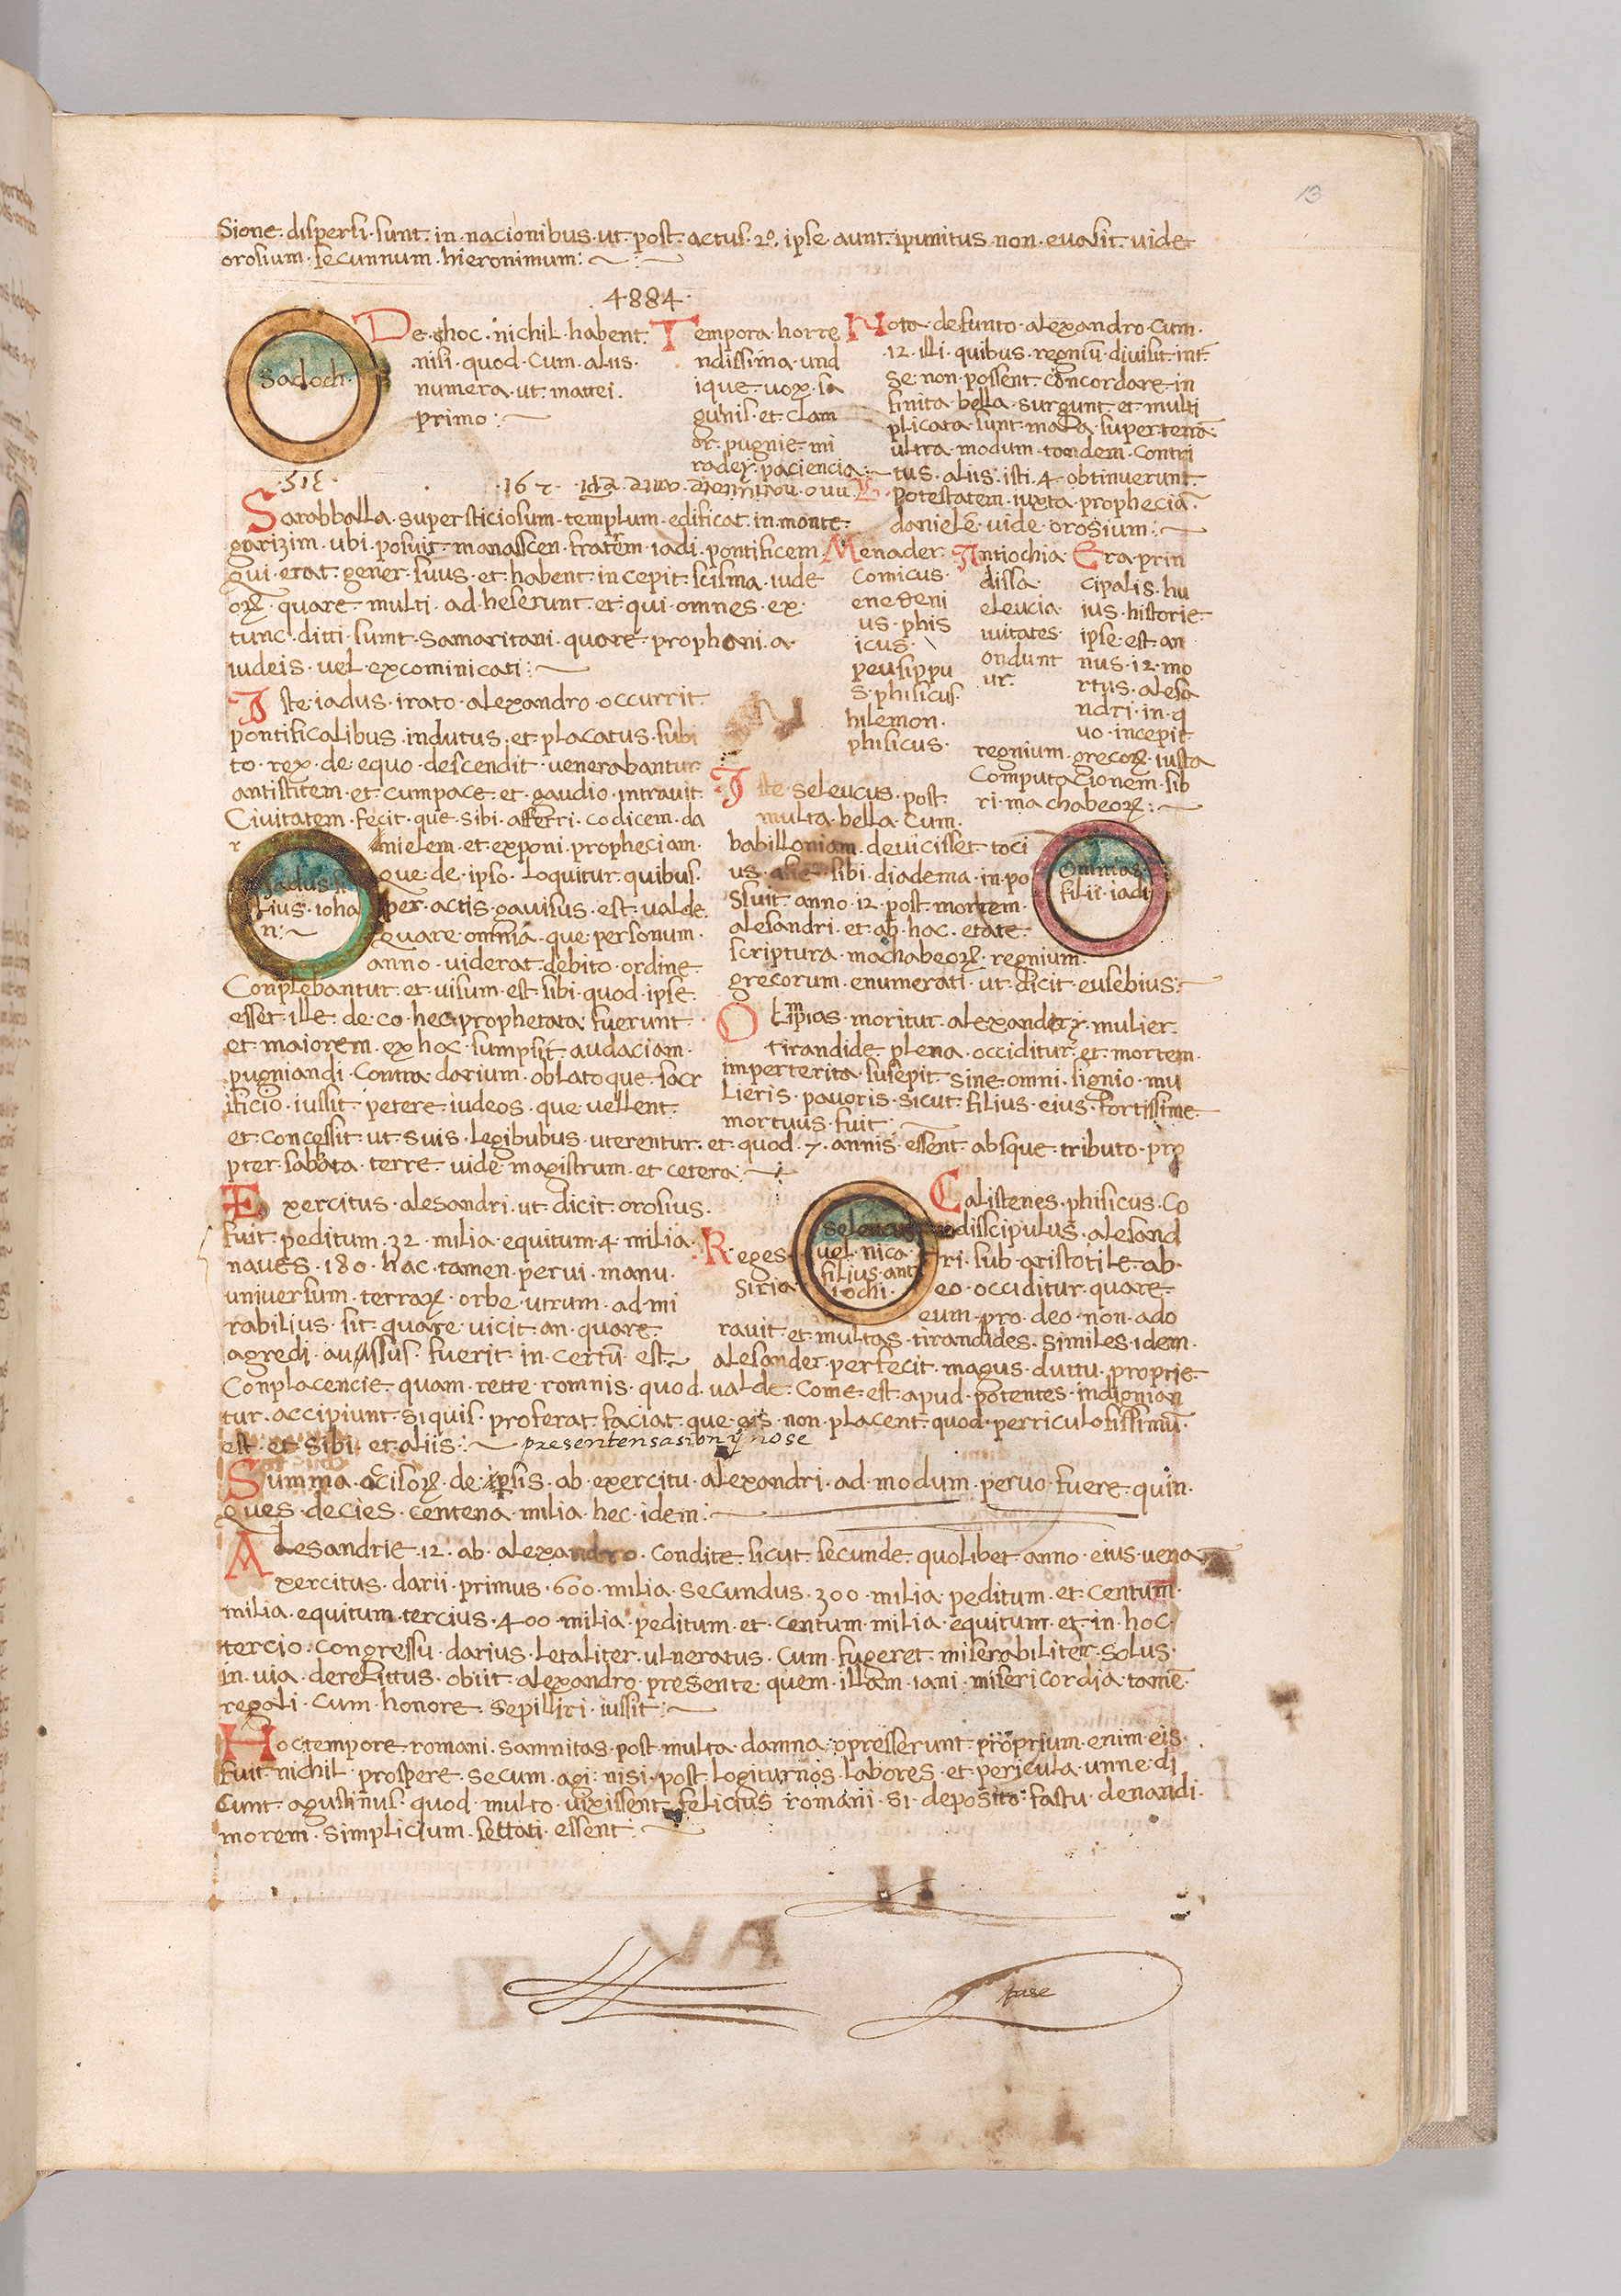 13
Sione · disperſi · ſunt · in · nacionibus · ut · post · actus · 2º · ipſe aunt · ipunitus · non · euaſit · vide
oroſium · ſecunnum · hieronimum :
4884
Sadoch
De · hoc · nichil · habent ·
niſi · quod · Cum · aliis ·
numera · ut · mattei ·
primo :
Tempora · horre
ndissima · und
ique · vox · ſa
gunis · et · clam
or · pugnie · mi
paciencia :
Nota · defunto · alexandro · Cum ·
·12· illi · quibus · regniū · diviſit · int̄
Se · non · possent · concordare · in
finita · bella · surgunt · et · multi
plicata · ſunt · mala · super · terrā ·
ultra · modum · tandem · Contri
tus · aliis · iſti · 4 · obtinuerunt ·
potestatem · iuxta · propheciā ·
daniele · vide · orosium :
Sarabballa · superſticiosum · templum · edificat · in · monte ·
garizim · ubi · poſuit · manaſſen · fratrem · iadi · pontificem ·
qui · erat · gener · ſuus · et · habent · incepit · ſciſma · iude
oꝝ · quare · multi · ad · heſerunt · et · qui · omnes · ex ·
tunc · ditti · ſunt · Samaritani · quare · prophani · a ·
iudeis · vel · excominicati :
Menader ·
Comicus ·
enedeni
us · phis
icus ·
peusippu
s · phiſicus ·
hilemon ·
phiſicus ·
Antiochia ·
diſſa ·
eleucia ·
iuitates ·
ondunt
ur ·
Era · prin
cipalis · hu
ius · historie
ipſe · est · an
nus · 12 · mo
rtus · aleſa
ndri · in · q
uo · incepit
regnium · grecoꝝ · iusta
Computacionem · lib
ri · machabeoꝝ :
Iste · iadus · irato · alexandro · occurrit ·
pontificalibus · indutus · et · placatus · ſubi
to · rex · de · equo · deſcendit · venerabantur
antistitem · et · cumpace · et · gaudio · intravit ·
Civitatem · fecit · que · sibi · afferri · codicem · da
nielem · et · exponi · propheciam ·
que · de · ipſo · loquitur · quibus ·
per · actis · gaviſus · est · valde ·
quare · omnia · que · per · ſonum ·
anno · viderat · debito · ordine
Conplebantur · et · viſum · est · ſibi · quod · ipſe ·
esset · ille · de · co · hec · prophetata · fuerunt ·
et · maiorem · ex · hoc · ſumpſit · audaciam ·
pugniandi · Contra · darium · oblatoque · ſacr
ificio · iuſſit · petere · iudeos · que · vellent ·
et · concessit · ut · suis · legibubus · uterentur · et · quod · 7 · annis · essent · absque · tributo · pro
pter · ſabbata · terre · vide · magistrum · et cetera :
Iadus · fi
lius · ioha
n :
Iste · Seleucus · post ·
multa · bella · Cum ·
babilloniam · devicisset · toci
us · aſie · ſibi · diadema · in · po
Sluit · anno · 12 · post · mortem ·
aleſandri · et · ab · hac · etate ·
ſcriptura · machabeoꝝ · regnium ·
grecorum · enumerati · ut · dicit · euſebius :
Omnias
filii · iadi
Olimpias · moritur · alexandery · mulier ·
tirandide · plena · occiditur · et · mortem ·
imperterita · ſuſepit · sine · omni · signio · mu
lieris · pavoris · sicut · filius · eius · fortissime
mortuus · fuit :
Exercitus · alesandri · ut · dicit · oroſius ·
fuit · peditum · 32 · milia · equitum · 4 · milia ·
naues · 180 · hac · tamen · pervi · manu ·
universum · terraꝝ · orbe · utrum · ad · mi
rabilius · sit · quare · vicit · an · quare ·
agredi · auſſus · fuerit · in · certū · est
Reges
Siria
Seleucus
vel · nica ·
filius · ant
iochi ·
Calistenes · phiſicus · Co
ndisscipulus · aleſand
ri · ſub · aristotile · ab ·
eo · occiditur · quare ·
eum · pro · deo · non · ado
ravit · et · multas · tirandides · Similes · idem ·
aleſander · perfecit · magus · duttu · proprie
Conplacencie · quam · rette · romnis · quod · valde · Come · est · apud · potentes · indignian
tur · accipiunt · si quis · proferat · faciat · que · eis · non · placent · quod · perriculoſissimū ·
est · et · sibi · et · aliis :
Summa · aciſoꝝ · de · ipſis · ab · exercitu · alexandri · ad · modum · pervo · fuere · quin ·
ques · decies · Centena · milia · hec · idem :
Alesandrie · 12 · ab · alexandro · condite · ſicut · ſecunde · quolibet · anno · eius · vena
xercitus · darii · primus · 600 · milia · secundus · 300 · milia · peditum · et · centum ·
milia · equitum · tercius · 400 · milia · peditum · et · centum · milia · equitum · et · in · hoc ·
tercio · congressu · darius · letaliter · ulneratus · Cum · fugeret · miſerabiliter · Solus ·
in · via · derelittus · obiit · alexandro · presente · quem · illam · iani · miſericordia · tamē ·
regali · cum · honore · Sepilliri · iuſſit :
Hoctempore · romani · Samnitas · post · multa · damna · opresserunt · proprium · enim · eis ·
fuit · nichil · prospere · secum · agi · nisi · post · logiturnos · labores · et · pericula · unne · di
Cunt · agustinus · quod · multo · vixissent · felicius · romani · si · deposito · fastu · denandi ·
morem · Simplicium · ſettati · essent :